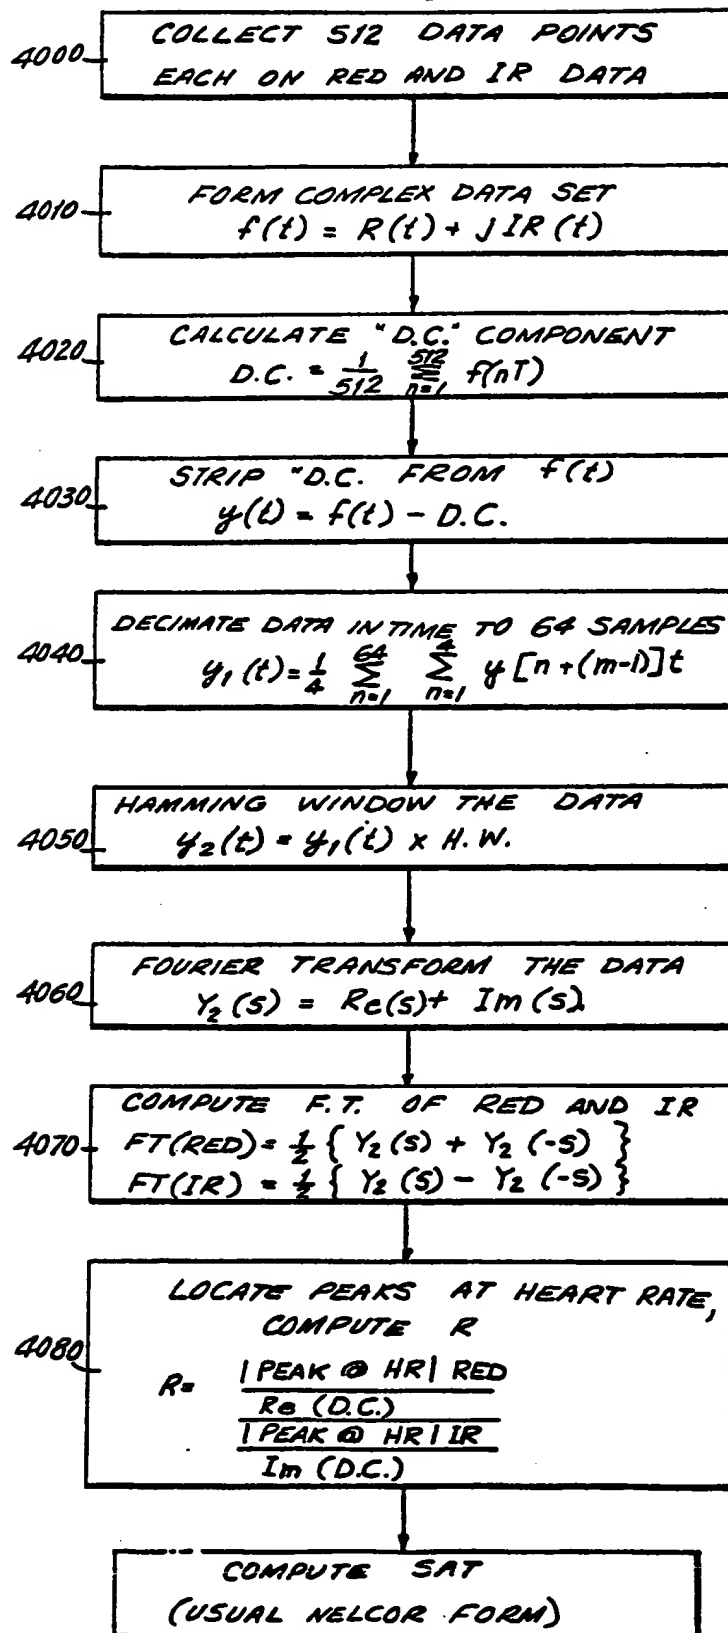 4000
COLLECT 512 DATA POINTS
EACH ON RED AND IR DATA
4010
FORM COMPLEX DATA SET
f(t) = R(t) + j IR (t)
4020
CALCULATE "D.C." COMPONENT
D.C. = 1/512 512 Σ n=1 f(nT)
4030
STRIP "D.C. FROM f(t)
y(t) = f(t) - D.C.
4040
DECIMATE DATA IN TIME TO 64 SAMPLES
y₁(t) = 1/4 64 Σ n=1 4 Σ n=1 y [n + (m-1)] t
4050
HAMMING WINDOW THE DATA
y₂(t) = y₁(t) x H.W.
4060
FOURIER TRANSFORM THE DATA
Y₂(s) = Re(s) + Im(s)
4070
COMPUTE F.T. OF RED AND IR
FT(RED) = 1/2 { Y₂(s) + Y₂(-s) }
FT(IR) = 1/2 { Y₂(s) - Y₂(-s) }
4080
LOCATE PEAKS AT HEART RATE,
COMPUTE R
R = | PEAK @ HR | RED
Re (D.C.)
| PEAK @ HR | IR
Im (D.C.)
COMPUTE SAT
(USUAL NELCOR FORM)